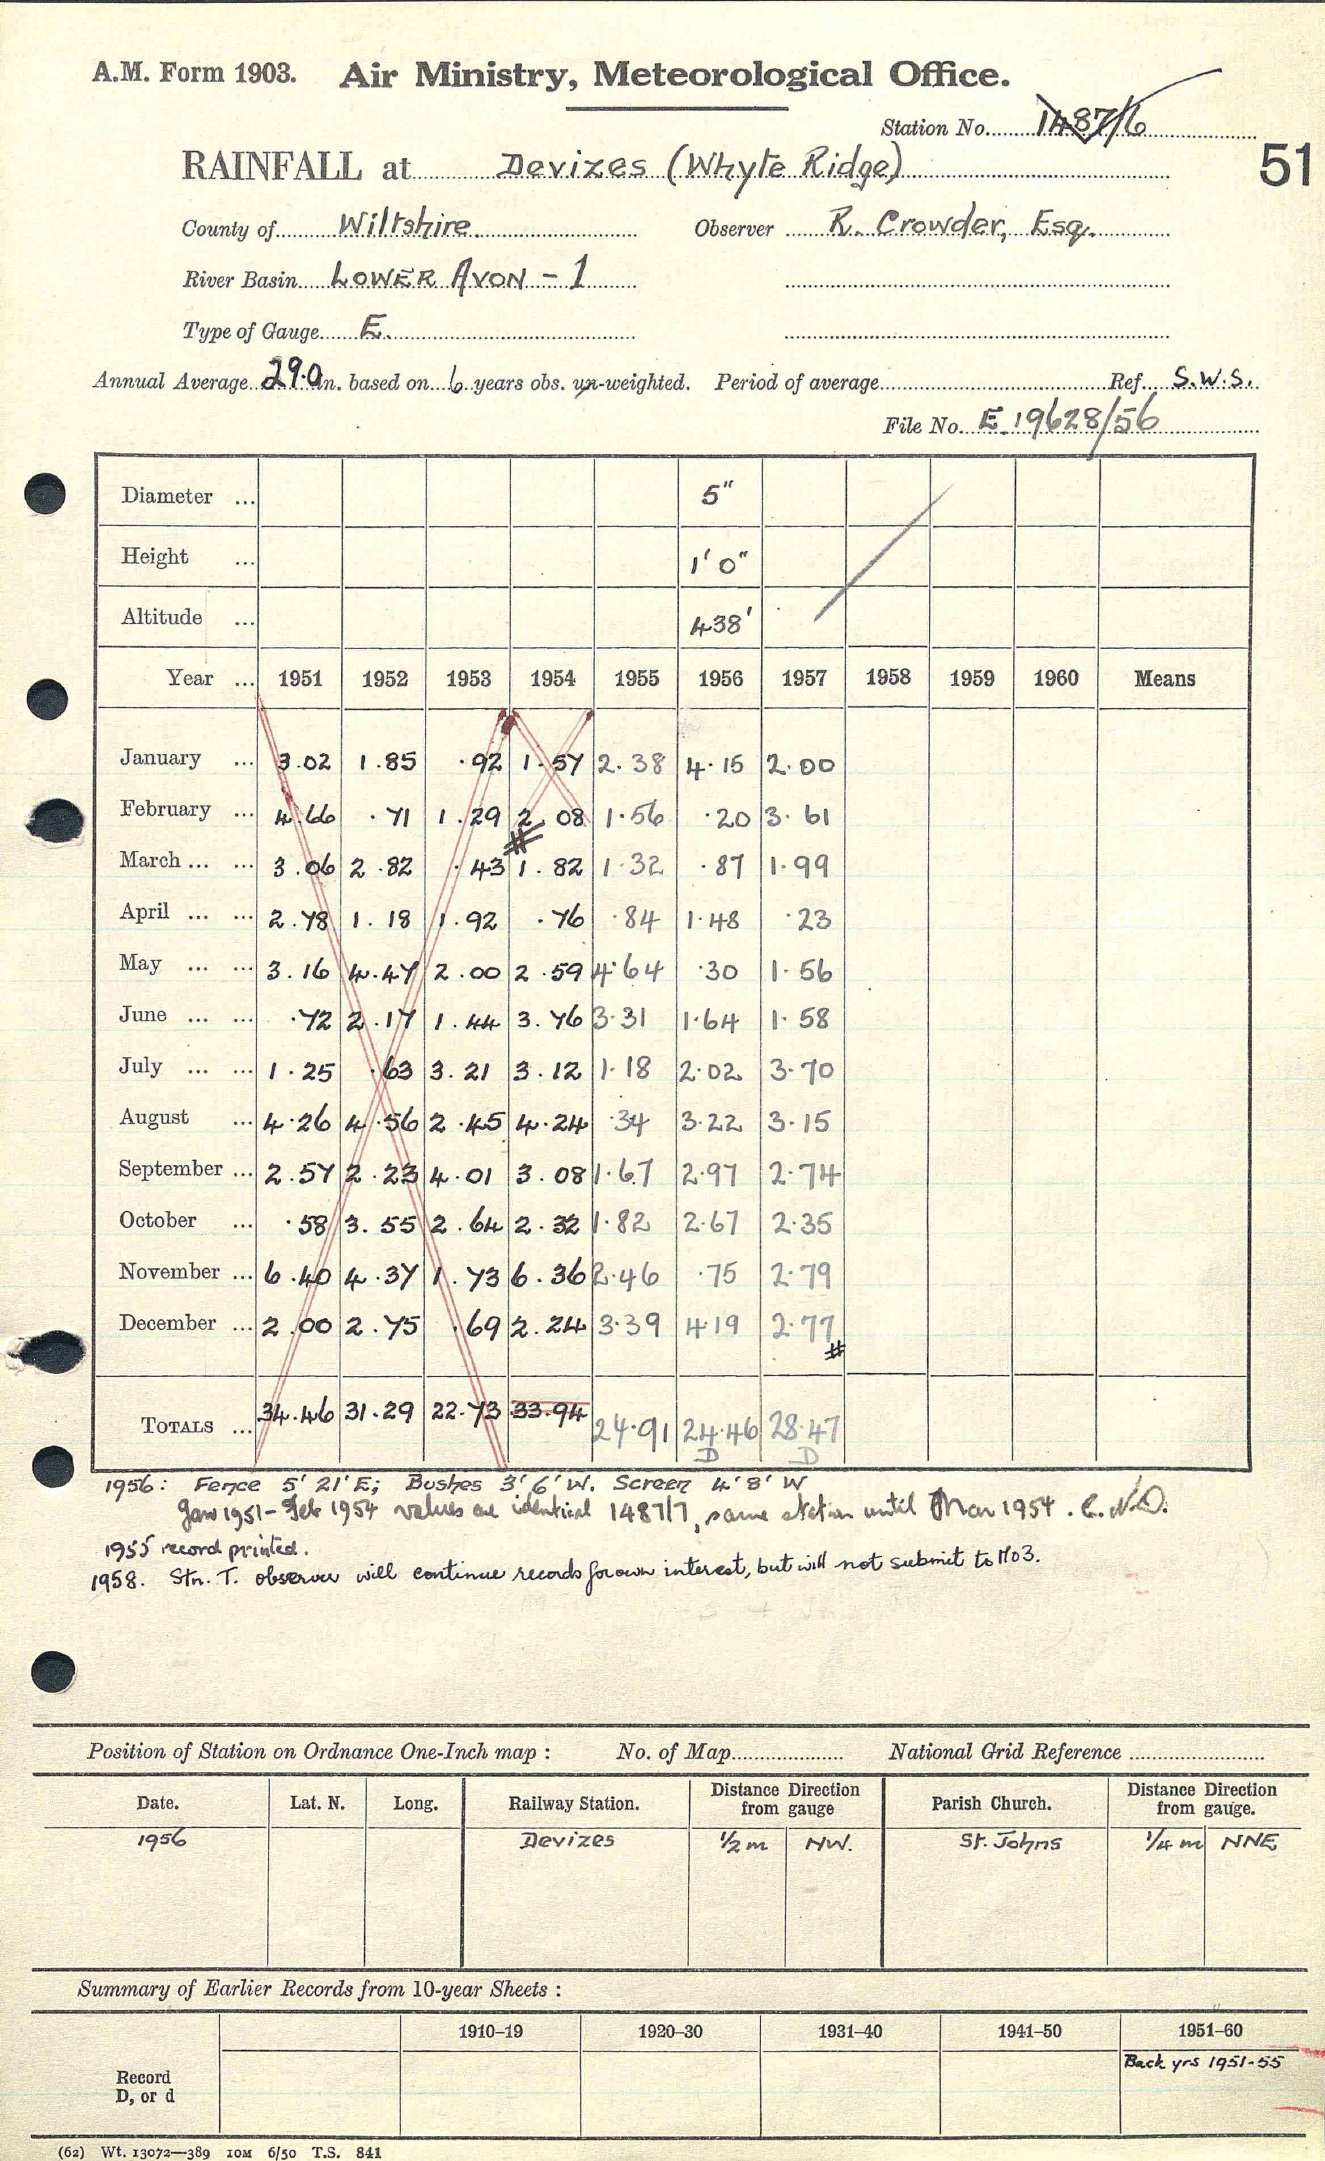 A.M. Form 1903. Air Ministry, Meteorological Office.
Station No. 1487/6
51
RAINFALL at Devizes (Whyte Ridge)
County of Wiltshire. Observer R. Crowder, Esq.
River Basin LOWER AVON - 1
Type of Gauge E.
Annual Average 29.0 in. based on 6 years obs. un-weighted. Period of average Ref. S.W.S.
File No. E 19628/56
Diameter ... 5"
Height ... 1' 0"
Altitude ... 438'
Year ... 1951 1952 1953 1954 1955 1956 1957 1958 1959 1960 Means
January ... 3.02 1.85 .92 1.57 2.38 4.15 2.00
February ... 4.66 .71 1.29 2.08 1.56 .20 3.61
#
March ... ... 3.06 2.82 .43 1.82 1.32 .87 1.99
April ... ... 2.78 1.18 1.92 .76 .84 1.48 .23
May ... ... 3.16 4.47 2.00 2.59 4.64 .30 1.56
June ... ... .72 2.17 1.44 3.76 3.31 1.64 1.58
July ... ... 1.25 .63 3.21 3.12 1.18 2.02 3.70
August ... 4.26 4.56 2.45 4.24 .34 3.22 3.15
September ... 2.57 2.23 4.01 3.08 1.67 2.97 2.74
October ... .58 3.55 2.64 2.32 1.82 2.67 2.35
November ... 6.40 4.37 1.73 6.36 2.46 .75 2.79
December ... 2.00 2.75 .69 2.24 3.39 4.19 2.77
#
TOTALS ... 34.46 31.29 22.73 33.94 24.91 24.46 28.47
D D
1956: Fence 5' 21' E; Bushes 3' 6' W. Screen 4' 8' W
Jan 1951-Feb 1954 values are identical 1487/7, same station until Mar 1954.
1955 record printed.
1958. Stn. T. observer will continue records for own interest, but will not submit to MO3.
Position of Station on Ordnance One-Inch map : No. of Map National Grid Reference
Date. Lat. N. Long. Railway Station. Distance Direction from gauge Parish Church. Distance Direction from gauge.
1956 Devizes 1/2 m NW. St. Johns 1/4 m NNE
Summary of Earlier Records from 10-year Sheets :
1910–19 1920–30 1931–40 1941–50 1951–60
Back yrs 1951-55
Record
D, or d
(62) Wt. 13072—389 10M 6/50 T.S. 841